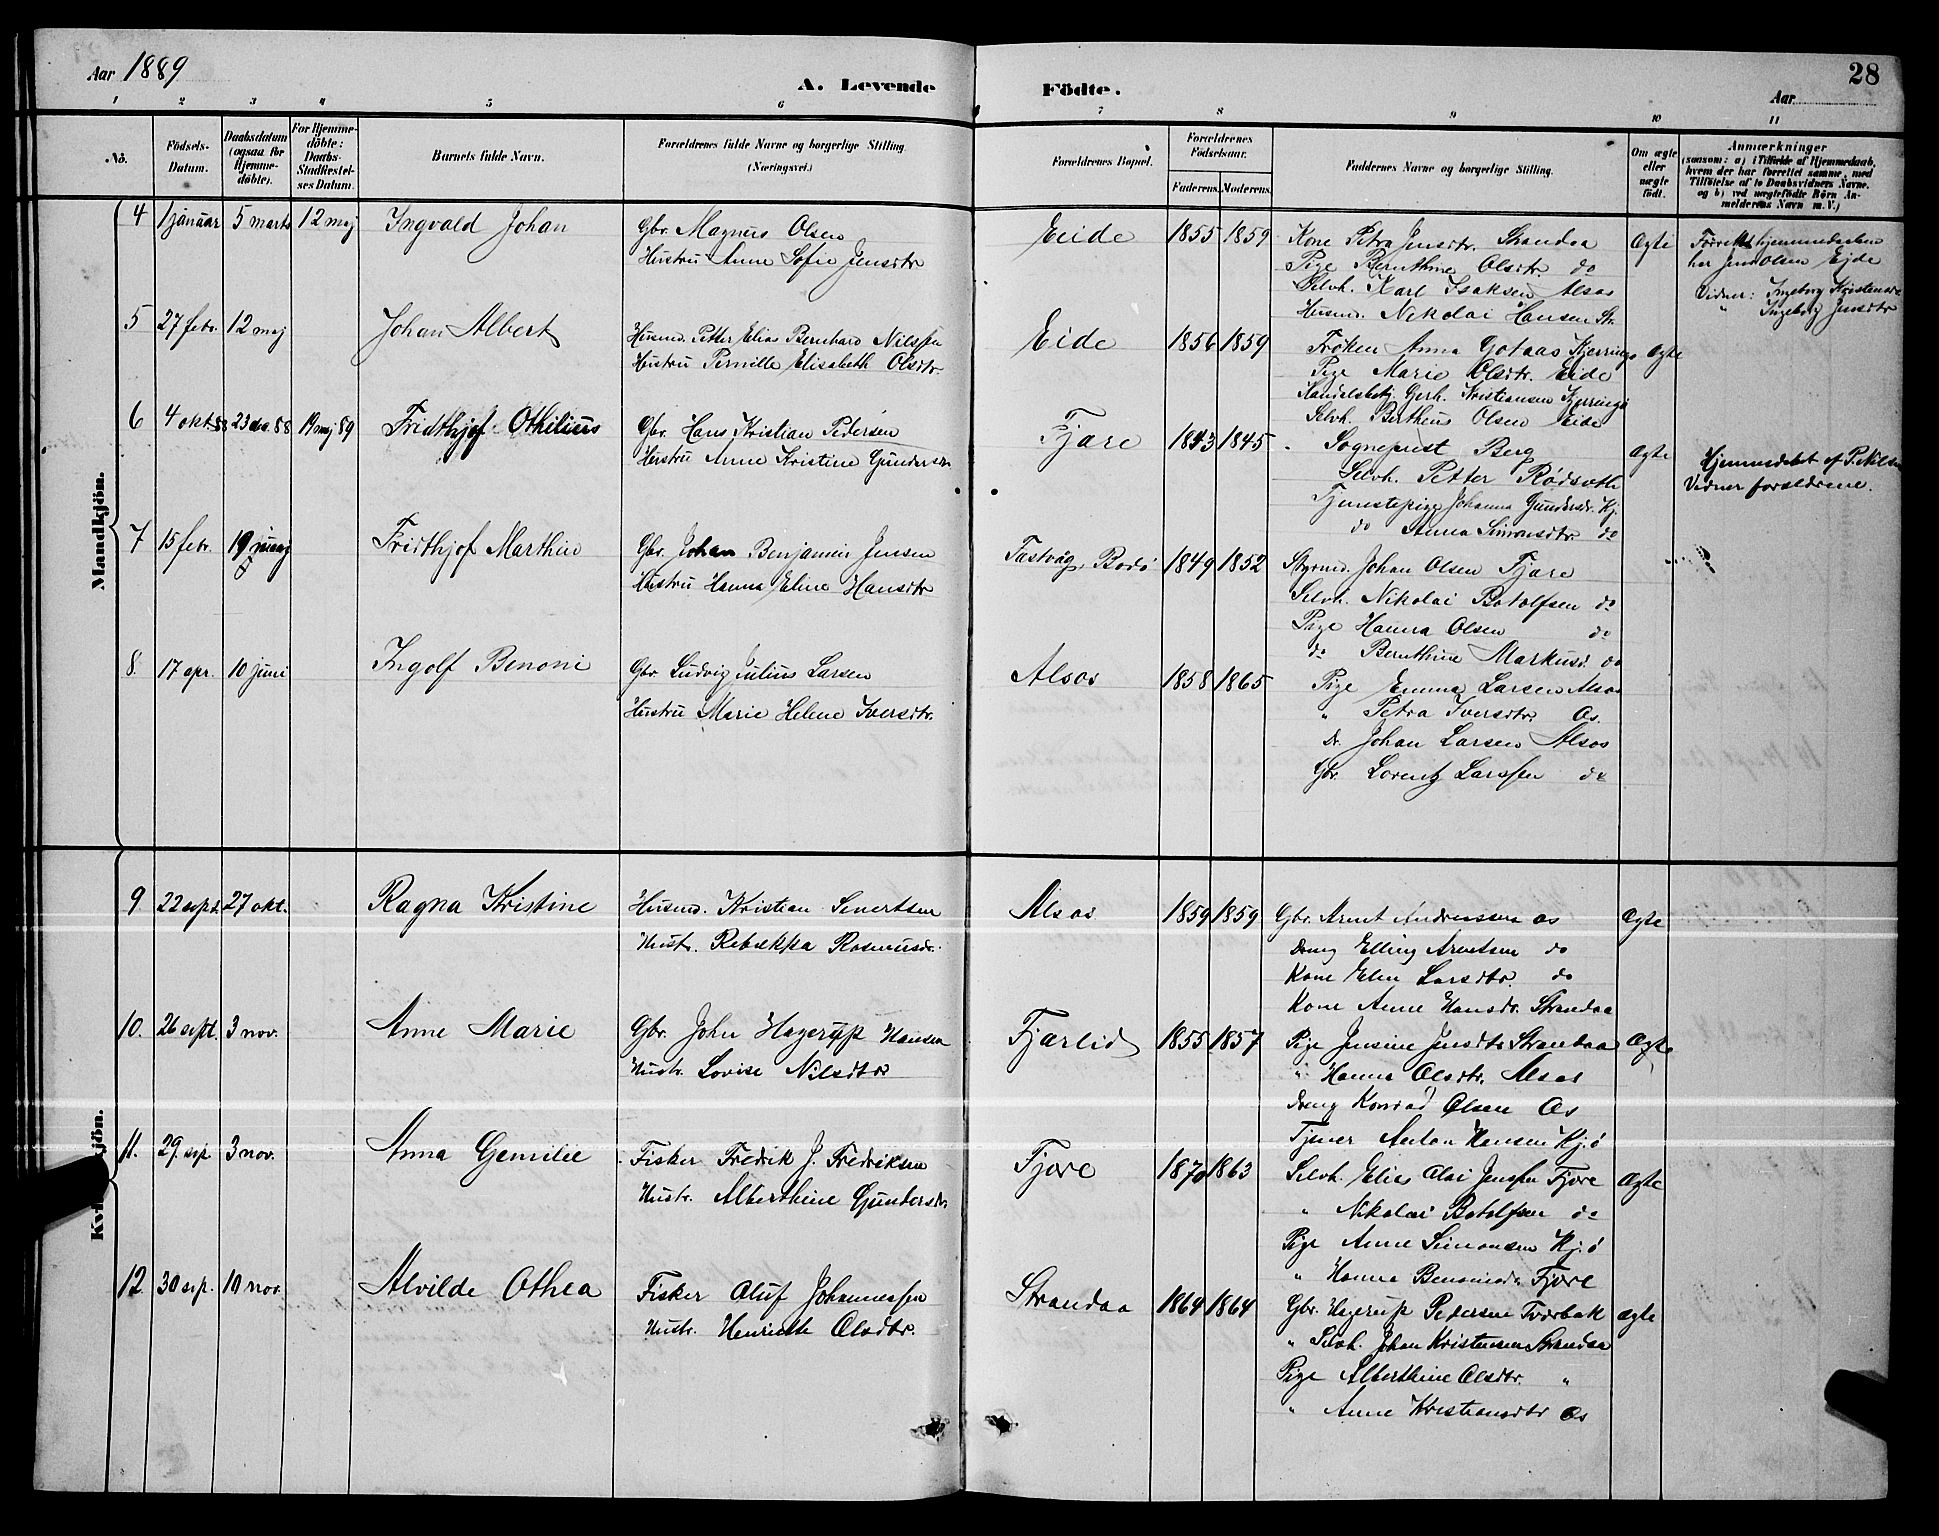 Aar 1889
A. Levende
Födte.
28
Aar
1 2 3 4 5 6 7 8 9 10 11
No.
Födsels-Datum.
Daabsdatum (ogsaa for Hjemme-döbte).
For Hjemme-döbte: Daabs-Stadfæstel-ses Datum.
Barnets fulde Navn.
Forældrenes fulde Navne og borgerlige Stilling (Næringsvei.)
Forældrenes Bopæl.
Forældrenes Födselsaar.
Faderens. Moderens.
Faddernes Navne og borgerlige Stilling.
Om ægte eller uægte födt.
Anmærkninger
(saasom: a) i Tilfælde af Hjemmedaab, hvem der har forrettet samme, med Tilföielse af to Daabsvidners Navne, og b) ved uægtefödte Börn An-melderens Navn m. V.)
Mandkjön.
4 1 januar 5 marts 12 maj Ingvald Johan
Gbr. Magnus Olsen
Hustru Anne Sofie Jensdtr
Eide 1855 1859
Kone Petra Jensdtr. Strandaa
Pige Bernthine Olsdtr. do
Selvh. Karl Isaksen Alsos
Husmd. Nikolai Hansen Str.
Ægte
Forrett. hjemmedaaben
har Jens Olsen Eide
Vidner: Ingeborg Kristensdr
" Ingeborg Jensdtr
5 27 febr. 12 maj Johan Albert
Husmd. Petter Elias Bernhard Nilssen
Hustru Pernille Elisabeth Olsdtr.
Eide 1856 1859
Frøken Anna Gotaas Kjerringø
Pige Marie Olsdtr. Eide
Handelsbetj. Gerh. Kristiansen Kjerringø
Selvh. Bertheus Olsen Eide
Ægte
6 4 okt 88 23 de. 88 19 maj 89 Fridthjof Othilius
Gbr. Hans Kristian Pedersen
Hustru Anne Kristine Gundersdr
Fjære 1843 1845
Sogneprest Berg
Selvh. Petter Rødsvoth
Tjenestepige Johanna Gundersdr. Kj.
do Anna Simonsdtr. do
Ægte
Hjemmedøbt af P. Nilsen
Vidner forældrene.
7 15 febr. 19 maj Fridthjof Marthin
Gbr. Johan Benjamin Jensen
Hustru Hanna Eline Hansdtr
Tastvåg, Bodø 1849 1852
Styrmd. Johan Olsen Fjære
Selvh. Nikolai Botolfsen do
Pige Hanna Olsen do
do Bernthine Markusd. do
8. 17 apr. 10 juni Ingolf Benoni
Gbr Ludvig Julius Larsen
Hustru Marie Helene Iversdtr.
Alsos 1858 1865
Pige Emma Larsen Alsos
" Petra Iversdtr. Os.
Dr. Johan Larsen Alsos
Gbr. Lorentz Larssen do
Kvindkjön.
9 22 sept. 27 okt. Ragna Kristine
Husmd. Kristian Sivertsen
Hustr. Rebækka Rasmusdr.
Alsos 1859 1859
Gbr. Arnt Andreassen Os
Dreng Elling Arntsen do
Kone Elen Larsdtr. do
Kone Anne Hansdr. Strandaa
Ægte
10. 26 sept. 3 nov. Anne Marie
Gbr. John Hagerup Hansen
Hustr. Lovise Nilsdtr
Fjærlid 1855 1857
Pige Jensine Jensdtr Strandaa
" Hanna Olsdtr. Alsos
Dreng Konrad Olsen Os
Tjener Anton Hansen Kj.ø
Ægte
11. 29. sep. 3 nov. Anna Gemilie
Fisker Fredrik J. Fredriksen
Hustr. Alberthine Gundersdr.
Fjære 1870 1863
Selvh. Elias Olai Jensen Fjære
" Nikolai Botolfsen do
Pige Anne Simonsen Kj.ø
" Hanna Benonisdr. Fjære
Ægte
12. 30 sep. 10 nov. Alvilde Othea
Fisker Oluf Johannessen
Hustr. Henriette Olsdtr.
Strandaa 1864 1864
Gbr. Hagerup Pedersen Tværbak
" Selvh. Johan Kristensen Strandaa
Pige Alberthine Olsdtr. "
" Anne Kristiansdtr Os
ægte